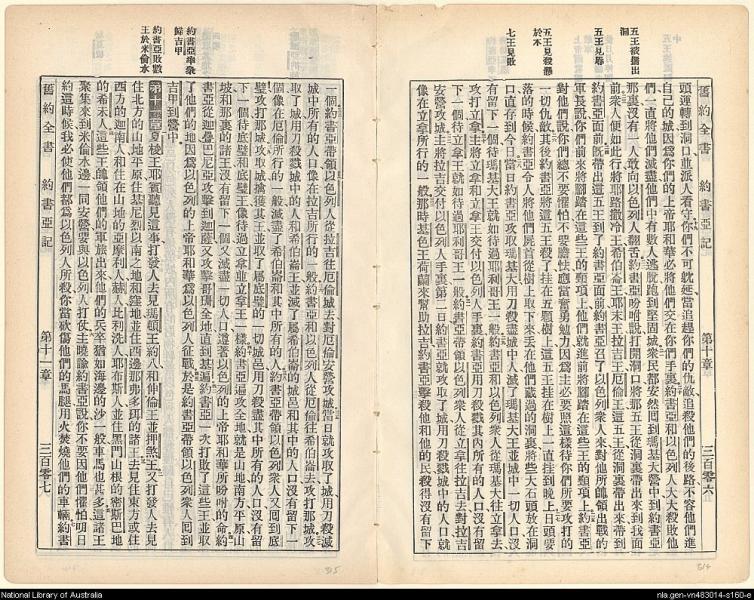 五王被攜出洞
五王見辱
五王見殺懸於木
七王見敗
舊約全書 約書亞記 第十章 三百零六
頭運轉到洞口並派人看守你們不可躭延當追趕你們的仇敵追殺他們的後路不容他們進
自己的城因爲你們的上帝耶和華必將他們交在你們手裏約書亞和以色列人大大殺敗他
們一直將他們滅盡他們中有數人逃脫跑到堅固城衆民都安然囘到瑪基大營中到約書亞
那裏沒有一人敢向以色列人翻舌約書亞吩咐說打開洞口將那五王從洞裏帶出來到我面
前衆人便如此行將耶路撒冷王希伯崙王耶末王拉吉王厄倫王這五王從洞裏帶出來帶到
約書亞面前旣帶出這五王到了約書亞面前約書亞召了以色列衆人來對他所帥領出戰的
軍長說你們前來將腳踏在這些王的頸項上他們就進前將腳踏在這些王的頸項上約書亞
對他們說你們總不要懼怕不要膽怯應當奮勇勉力因爲主必要照這樣待你們所要攻打的
一切仇敵其後約書亞將這五王殺了挂在五顆樹上這五王挂在樹上一直挂到晚上日頭要
落的時候約書亞令人將他們屍首從樹上取下來丢在他們藏過的洞裏將些大石頭放在洞
口直存到今日當日約書亞攻取瑪基大用刀殺盡城中人滅了瑪基大王並城中一切人口沒
有留下一個待瑪基大王就如待過耶利哥王一般約書亞和以色列衆人從瑪基大往立拿去
攻打立拿主將立拿和立拿王交付以色列人手裏約書亞用刀殺戮其內所有的人口沒有留
下一個待立拿王就如待過耶利哥王一般約書亞帶領以色列衆人從立拿往拉吉去對拉吉
安營攻城主將拉吉交付以色列人手裏第二日約書亞就攻取了城用刀殺戮城中的人口就
像在立拿所行的一般那時基色王荷蘭來幫助拉吉約書亞擊殺他和他的民殺得沒有留下
約書亞率衆歸吉甲
約書亞敗數王於米倫水
一個約書亞帶領以色列人從拉吉往厄倫城去對厄倫安營攻城當日就攻取了城用刀殺滅
城中所有的人口像在拉吉所行的一般約書亞和以色列人從厄倫往希伯崙去攻打那城攻
取了城用刀殺戮城中的人和希伯崙王並滅了屬希伯崙的城邑和其中的人口沒有留下一
個像在厄倫所行的一般滅盡了希伯崙和其中所有的人約書亞帶領以色列衆人又囘到底
璧攻打那城攻取城擒獲其王並取了屬底璧的一切城邑用刀殺盡其中所有的人口沒有留
下一個待底璧和底璧王像待過立拿並立拿王一樣約書亞遍攻全地就是山地南方平原山
坡和那裏的諸王沒有留下一個又滅盡一切人口遵著以色列的上帝耶和華所吩咐的命約
書亞從迦疊巴尼亞攻擊到迦薩又攻擊哥珊全地直到基遍約書亞一次打敗了這些王並取
了他們的地因爲以色列的上帝耶和華爲以色列人征戰於是約書亞帶領以色列衆人囘到
吉甲到營中
第十一章夏梭王耶賓聽見這事打發人去見瑪頓王約八和伸倫王並押煞王又打發人去見
住北方的山地平原住基尼烈以南之地和窪地並住西邊那弗多珥的諸王去見住東方或住
西方的迦南人和住在山地的亞摩利人赫人比利洗人耶布斯人並住黑門山根的密斯巴地
的希未人這些王帥領他們的軍旅出來他們的兵卒猶如海邊的沙一般車馬也甚多這諸王
聚集來到米倫水邊一同安營要與以色列人打仗主曉諭約書亞說你不要因他們懼怕明日
約這時候我必使他們都爲以色列人所殺你當砍傷他們的馬腿用火焚燒他們的車輛約書
舊約全書 約書亞記 第十一章 三百零七
315
314
National Library of Australia
nla.gen-vn483014-s160-e